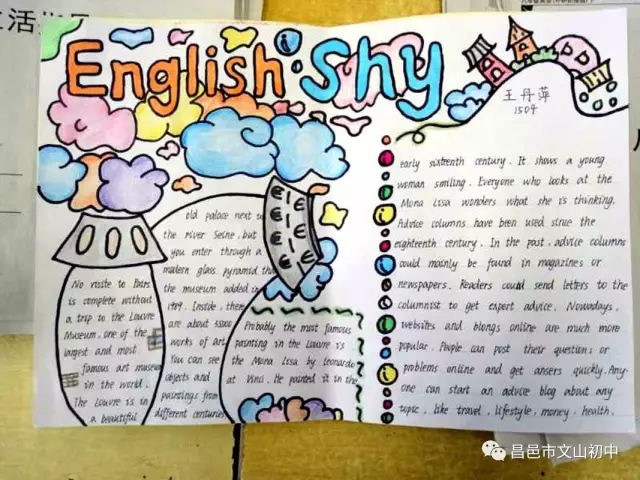 English Shy
王丹萍
1504
No visite to Paris
is complete without
a trip to the Louvre
Museum. one of the
largest and most
famous art museum
in the world.
The Louvre is in
a beautiful
old palace next to
the river Seine. but
you enter through a
modern glass pyramid that
the museum added in
1989. Inside, there
are about 35000
works of Art.
You can see
objects and
paintings from
different centuries
Probably the most famous
painting in the Louvre is
the Mona Lisa by Leonardo
at Vinci. He painted it in the
early sixteenth century. It shows a young
woman smiling. Everyone who looks at the
Mona Lisa wonders what she is thinking.
Advice columns have been used since the
eighteenth century. In the past, advice columns
could mainly be found in magazines or
newspapers. Readers could send letters to the
columnist to get expert advice. Nowadays,
websites and blongs online are much more
popular. People can post their questions or
problems online and get ansers quickly. Any-
one can start an advice blog about any
topic, like travel, lifestyle, money, health,
昌邑市文山初中